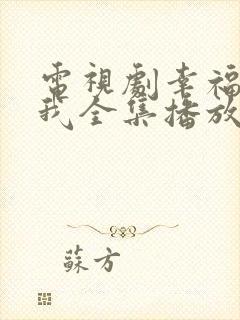 電視劇幸福
我全集播放
蘇方